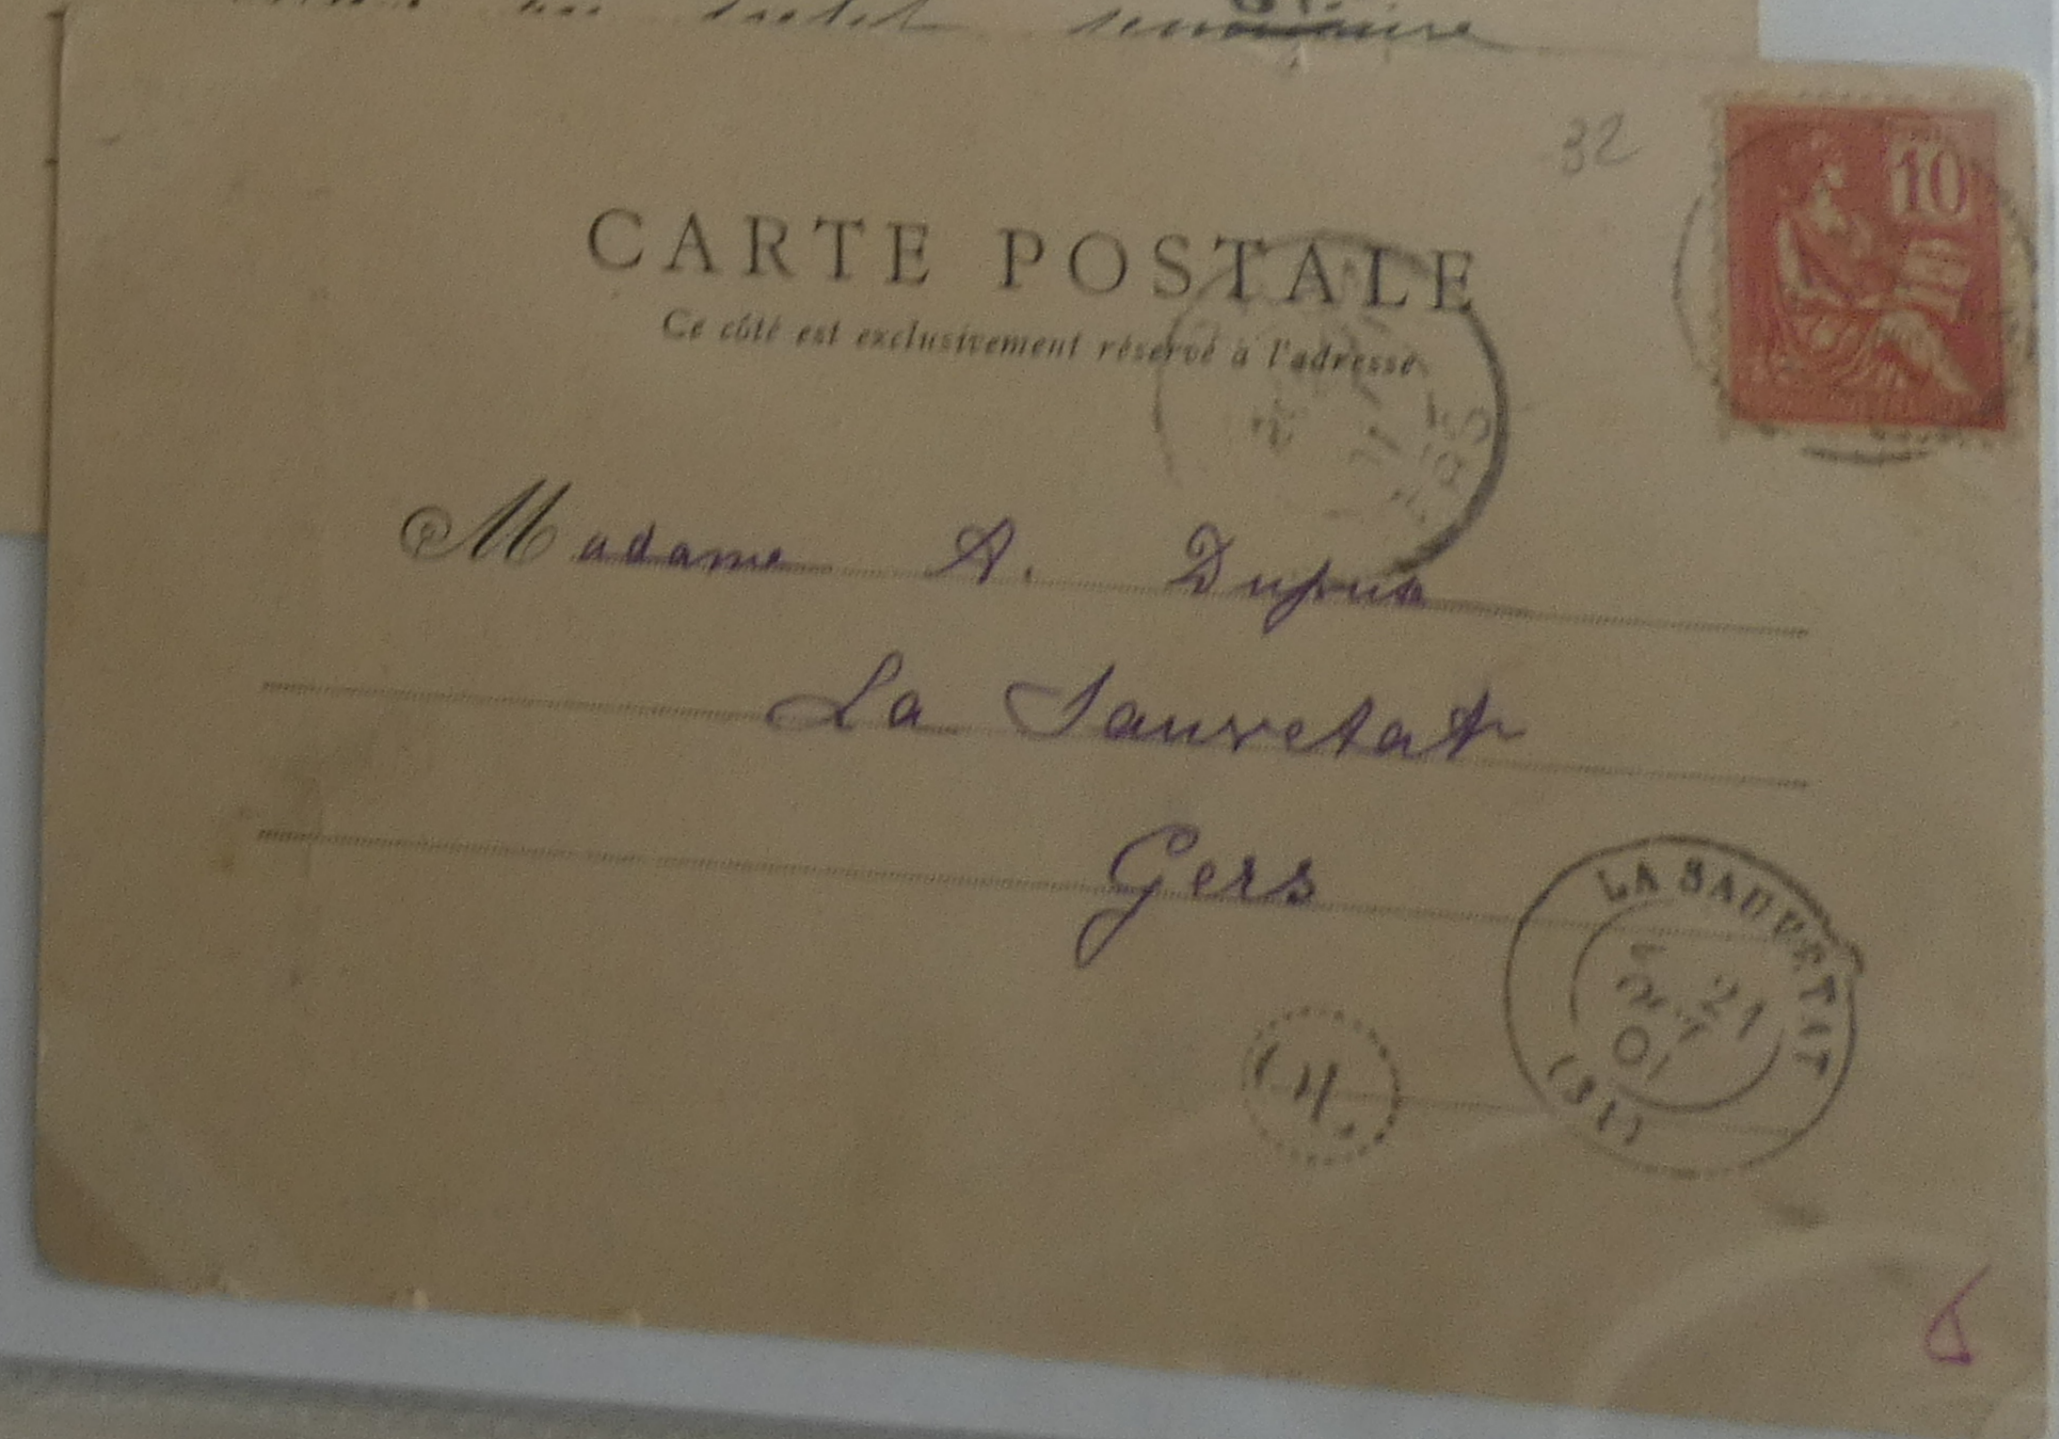 32
10
CARTE POSTALE
Ce côté est exclusivement réservé à l'adresse
Madame A. Dupua
La Sauvetat
Gers
LA SAUVETAT
21
OCT
01
(31)